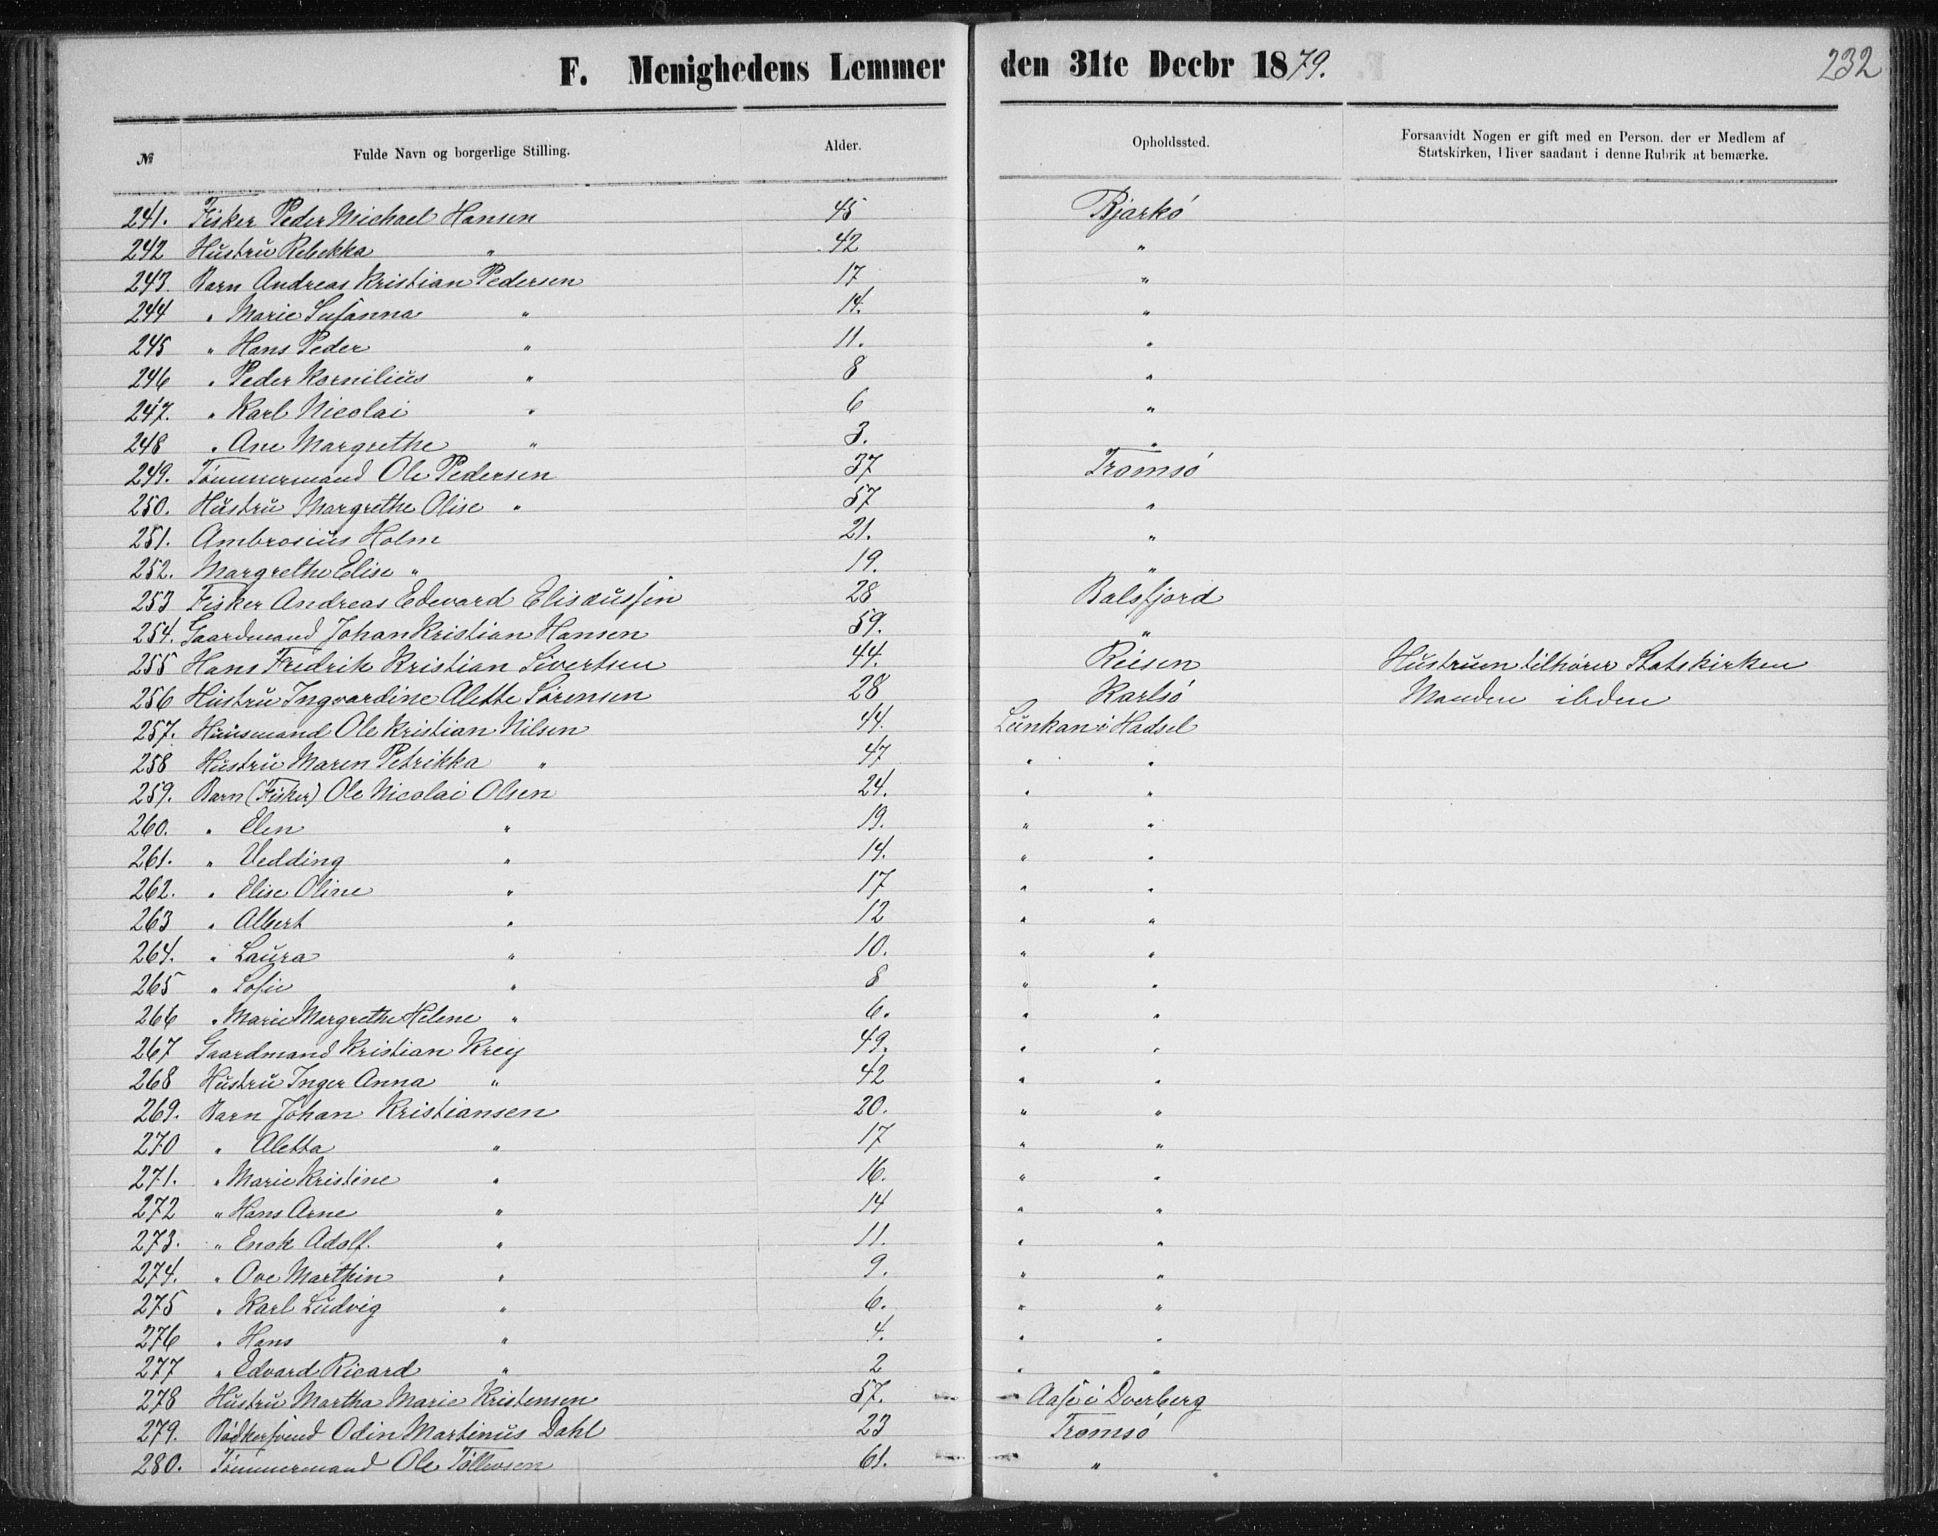 F. Menighedens Lemmer den 31te Decbr 1879. 232
№ Fulde Navn og borgerlige Stilling. Alder. Opholdssted. Forsaavidt Nogen er gift med en Person, der er Medlem af
Statskirken, bliver saadant i denne Rubrik at bemærke.
241. Fisker Peder Michael Hansen 45 Bjarkö
242 Hustru Rebekka " 42 "
243. Barn Andreas Kristian Pedersen 17 "
244 " Marie Susanna " 14. "
245 " Hans Peder " 11. "
246 " Peder Kornilius " 8 "
247. " Karl Nicolai " 6 "
248 " Ane Margrethe " 3. "
249. Tömmermand Ole Pedersen 37 Tromsö
250. Hustru Margrethe Olise " 57 "
251. Ambrosius Holm 21. "
252. Margrethe Elise " 19. "
253 Fisker Andreas Edevard Elisæussen 28 Balsfjord
254. Gaardmand Johan Kristian Hansen 59. "
255 Hans Fredrik Kristian Sivertsen 44. Reisen Hustruen tilhører Statskirken
256 Hustru Ingvardine Alette Sørensen 28 Karlsö Manden ibden
257. Huusmand Ole Kristian Nilsen 44. Lunkan i Hadsel
258 Hustru Maren Petrikka " 47 " "
259. Barn (Fisker) Ole Nicolai Olsen 24. " "
260. " Elen " 19. " "
261. " Vedding " 14. " "
262. " Elise Oline " 17 " "
263 " Albert " 12 " "
264. " Laura " 10. " "
265 " Sofie " 8 " "
266 " Marie Margrethe Helene " 6. " "
267 Gaardmand Kristian Krey 49. " "
268 Hustru Inger Anna " 42 " "
269. Barn Johan Kristiansen 20. " "
270 " Aletta " 17 " "
271. " Marie Kristine " 16. " "
272 " Hans Arne " 14 " "
273. " Enok Adolf. " 11. " "
274. " Ove Marthin " 9. " "
275 " Karl Ludvig " 6. " "
276 " Hans " 4. " "
277 " Edvard Ricard " 2 " "
278 Hustru Martha Marie Kristensen 57. Aase i Dverberg
279. Bödkersvend Odin Martinus Dahl 23 Tromsö
280. Tömmermand Ole Tollevsen 61. "